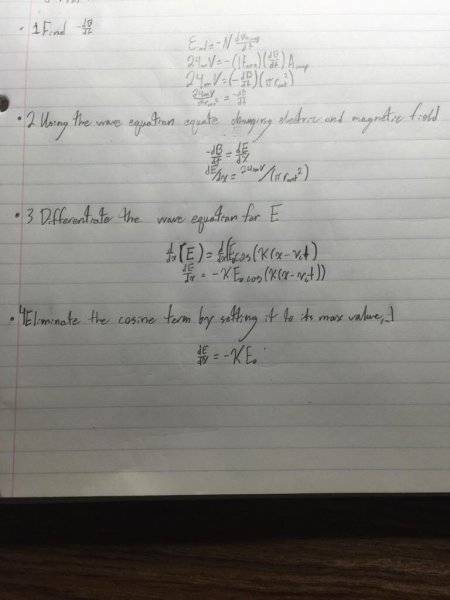 • 1 Find -dB/dt
24mV = -(1turn)(dB/dt) Aloop
24mV = (-dB/dt)(πr²)
• 2 Using the wave equation equate changing electric and magnetic field
-dB/dt = dE/dx
dE/dx = 24mV/(π r²)
• 3 Differentiate the wave equation for E
d/dx(E) = d/dx(E₀cos(K(x-v₀t)
dE/dx = -KE₀cos(K(x-v₀t))
• 4 Eliminate the cosine term by setting it to its max value, 1
dE/dx = -KE₀